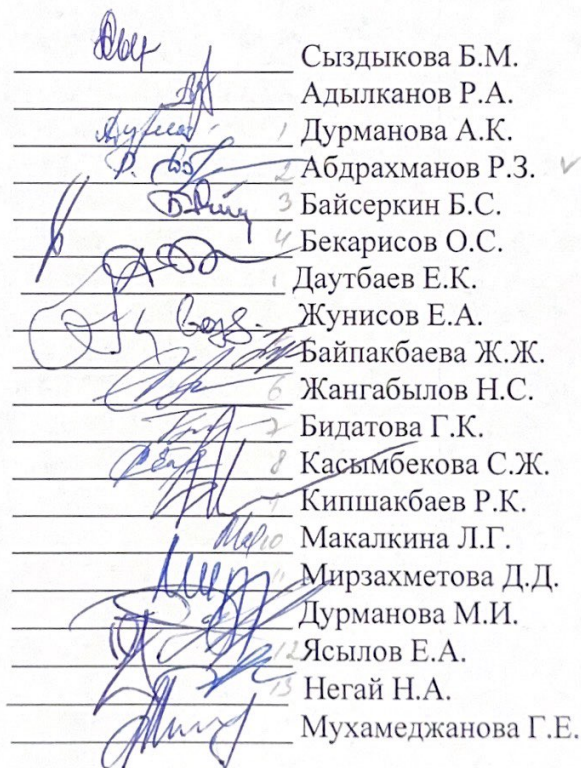 Сыздыкова Б.М.
Адылканов Р.А.
1 Дурманова А.К.
2 Абдрахманов Р.З. ✓
3 Байсеркин Б.С.
4 Бекарисов О.С.
Даутбаев Е.К.
Жунисов Е.А.
Байпакбаева Ж.Ж.
6 Жангабылов Н.С.
7 Бидатова Г.К.
8 Касымбекова С.Ж.
Кипшакбаев Р.К.
10 Макалкина Л.Г.
11 Мирзахметова Д.Д.
Дурманова М.И.
12 Ясылов Е.А.
13 Негай Н.А.
Мухамеджанова Г.Е.